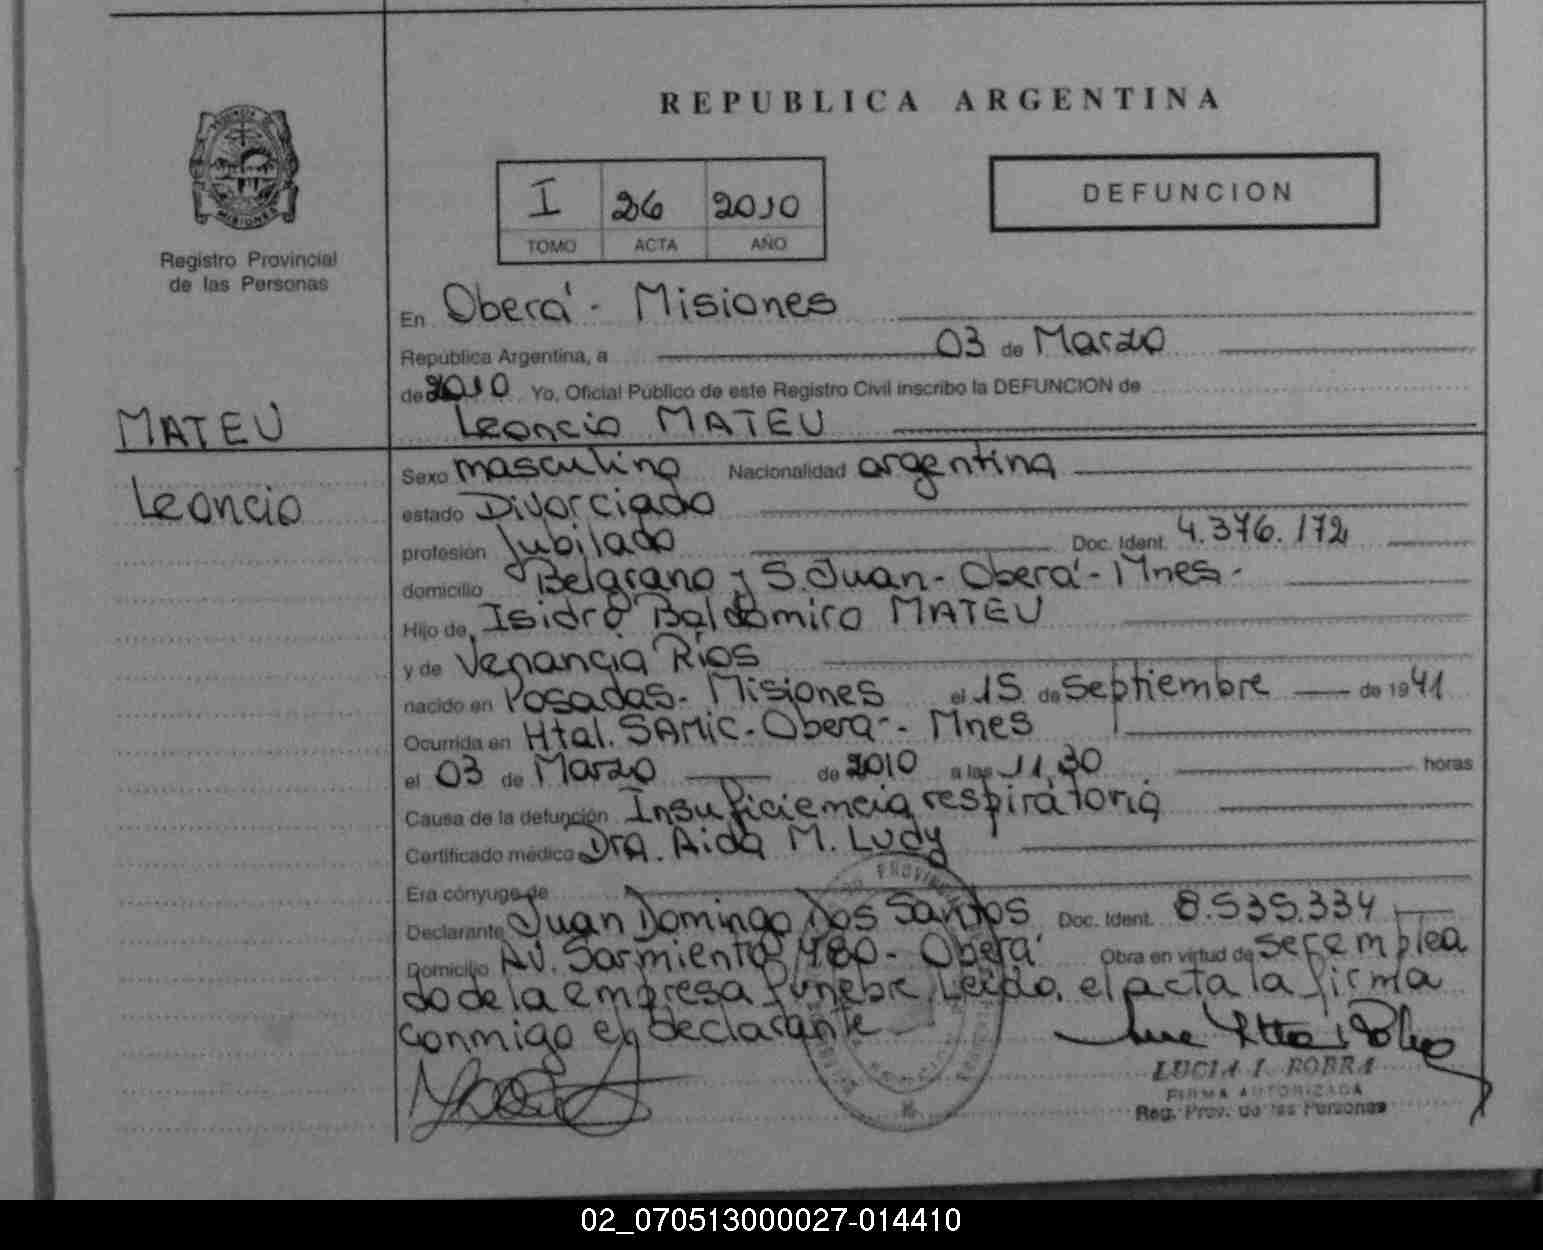 REPUBLICA ARGENTINA
I 26 2010
TOMO ACTA AÑO
DEFUNCION
MISIONES
Registro Provincial
de las Personas
En Oberá - Misiones
República Argentina, a 03 de Marzo
de 2010 Yo, Oficial Público de este Registro Civil inscribo la DEFUNCION de
MATEU
Leoncio MATEU
Leoncio
Sexo masculino Nacionalidad argentina
estado Divorciado
profesión Jubilado Doc. Ident. 4.376.172
domicilio Belgrano y S. Juan - Oberá - Mnes -
Hijo de Isidro Baldomiro MATEU
y de Venancia Ríos
nacido en Posadas - Misiones el 15 de Septiembre de 1941
Ocurrida en Htal. SAMIC - Oberá - Mnes
el 03 de Marzo de 2010 a las 11,30 horas
Causa de la defunción Insuficiencia respiratoria
Certificado médico Dra. Aida M. Ludy
Era cónyuge de
Declarante Juan Domingo Dos Santos Doc. Ident. 8.535.334
Domicilio Av. Sarmiento 480 - Oberá Obra en virtud de ser emplea
do de la empresa fúnebre, Leído, el acta la firma
conmigo el declarante
LUCIA I. ROBRA
FIRMA AUTORIZADA
Reg. Prov. de las Personas
02_070513000027-014410